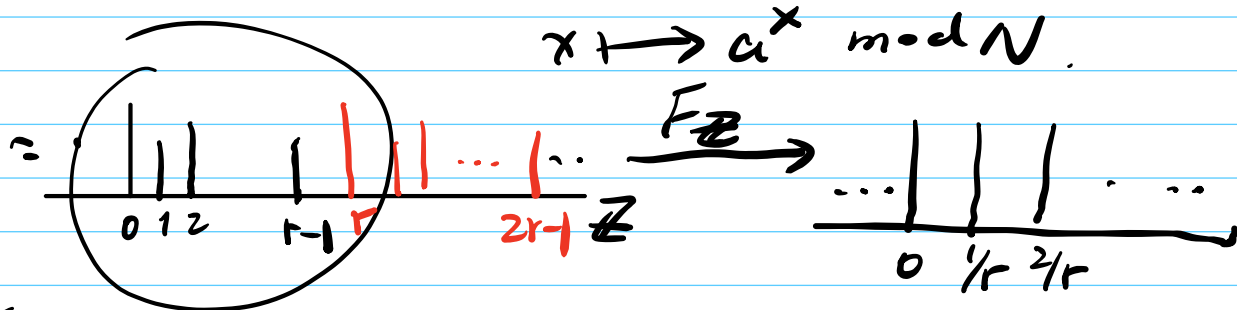 x ↦ a^x mod N.
≈ F_ℤ
... ... ... ...
0 1 2 r-1 r 2r-1 ℤ 0 1/r 2/r